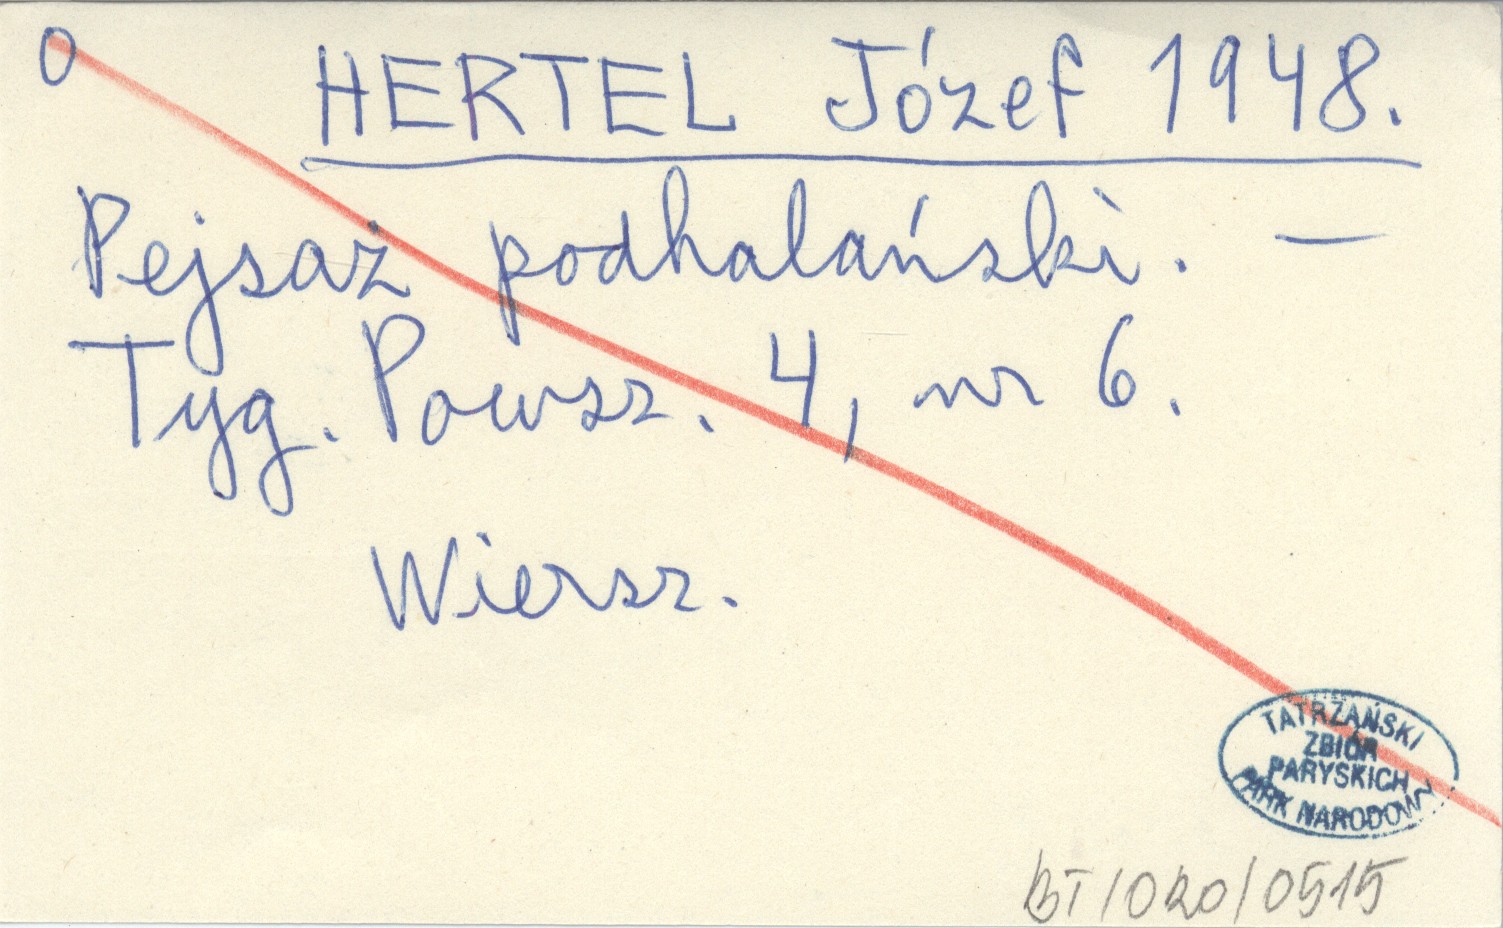 0 HERTEL Józef 1948.
Pejsaż podhalański. —
Tyg. Powsz. 4, nr 6.
Wiersz.
TATRZAŃSKI
ZBIÓR
PARYSKICH
PARK NARODOWY
BT/020/0515